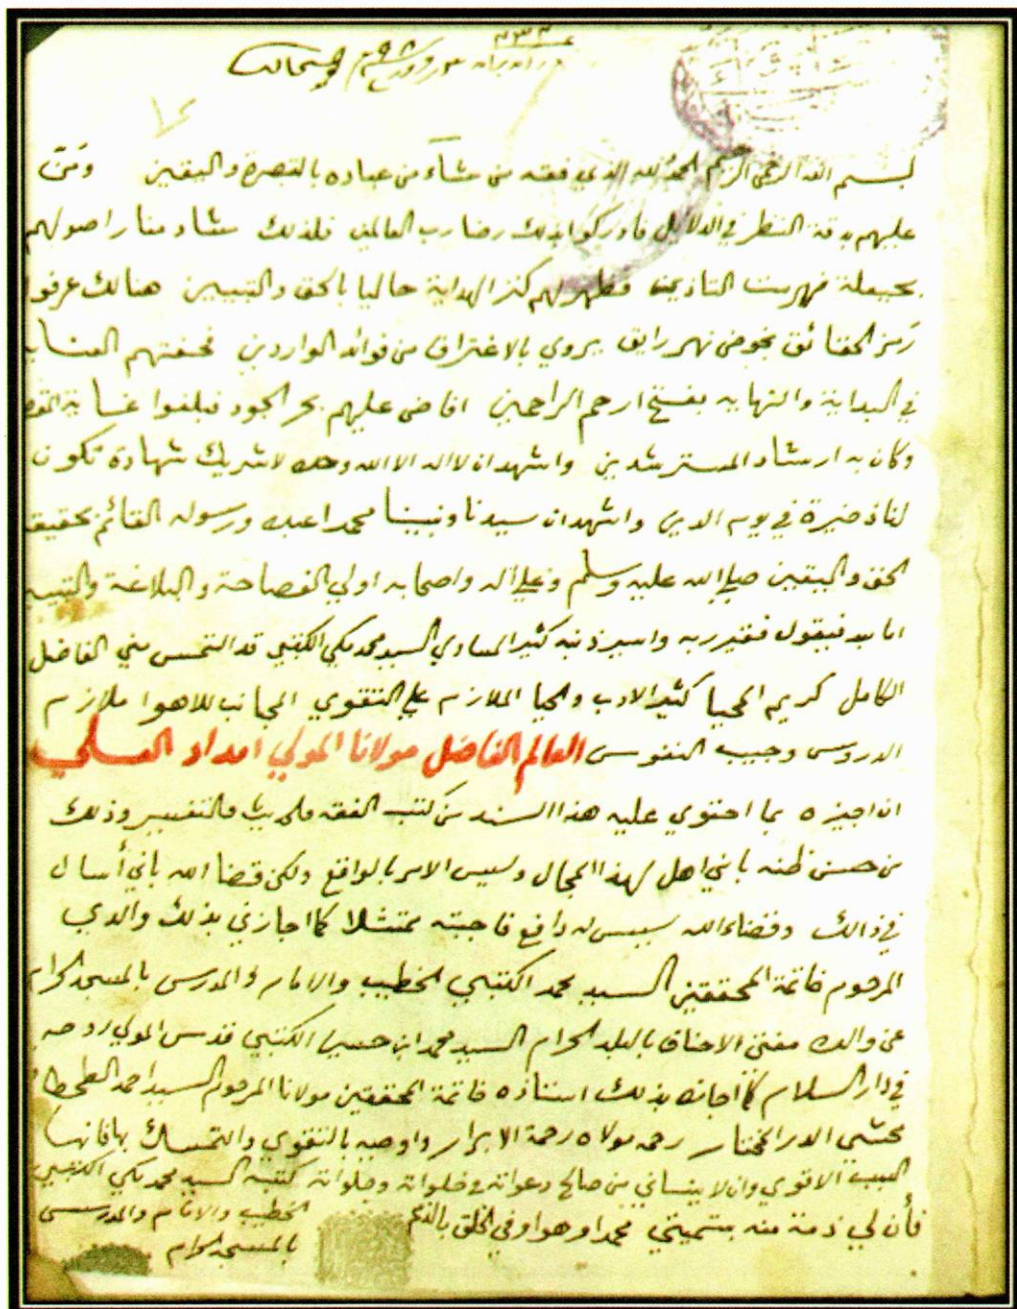 بسم الله الرحمن الرحيم الحمد لله الذي فقه من شاء من عباده بالتبصرة واليقين ومنّ
عليهم بدقة النظر في الدلايل فادركوا بذلك رضا رب العالمين فلذلك شاد منار اصولهم
فظهر لهم كنز الهداية حاليا بالحق والتبيين هنالك عرفوا
رمز الحقائق بخوض نهر رايق يروي بالاغتراف من فوائد الواردين فحفتهم العنايه
في البداية والنهايه بفتح ارحم الراحمين افاض عليهم بحر الجود فبلغوا غساية
وكان به ارشاد المسترشدين واشهد ان لا اله الا الله وحده لا شريك شهادة تكون
لنا ذخيرة في يوم الدين واشهد ان سيدنا ونبينا محمدا عبده ورسوله القائم بحقيقة
الحق واليقين صلى الله عليه وسلم وعلي آله واصحابه اولي الفصاحة والبلاغة والتبيين
اما بعد فيقول فقير ربه واسير ذنبه كثير المساوي السيد محمد مكي الكتبي قد التمس مني الفاضل
الكامل كريم المحيا كثير الادب والحيا الملازم علي التقوي المجانب للاهوا ملازم
الدروس وحبيب النفوس العالم الفاضل مولانا المولي امداد العلي
ان اجيزه بما احتوي عليه هذا السند من كتب الفقه والحديث والتفسير وذلك
من حسن ظنه باني اهل لهذا المجال وليس الامر بالواقع ولكن قضا الله باني أسال
في ذالك وقضاء الله ليس له دافع فاجبته ممتثلا كما اجازني بذلك والدي
المرحوم خاتمة المحققين السيد محمد الكتبي الخطيب والامام والمدرس بالمسجد الحرام
عن والده مفتي الاحناف بالبلد الحرام السيد محمد ابن حسين الكتبي قدس المولي روحه
في دار السلام كما اجازه بذلك استاذه خاتمة المحققين مولانا المرحوم السيد احمد الطحطاوي
محشي الدر المختار رحمه مولاه رحمة الابرار واوصيه بالتقوي والتمسك بها فانها
السبب الاقوي وان لا ينساني من صالح دعواته في خلواته وجلواته كتبه السيد محمد مكي الكتبي
الخطيب والامام والمدرس
بالمسجد الحرام
فأن لي ذمة منه بتسميتي محمدا وهو اوفي الخلق بالذمم